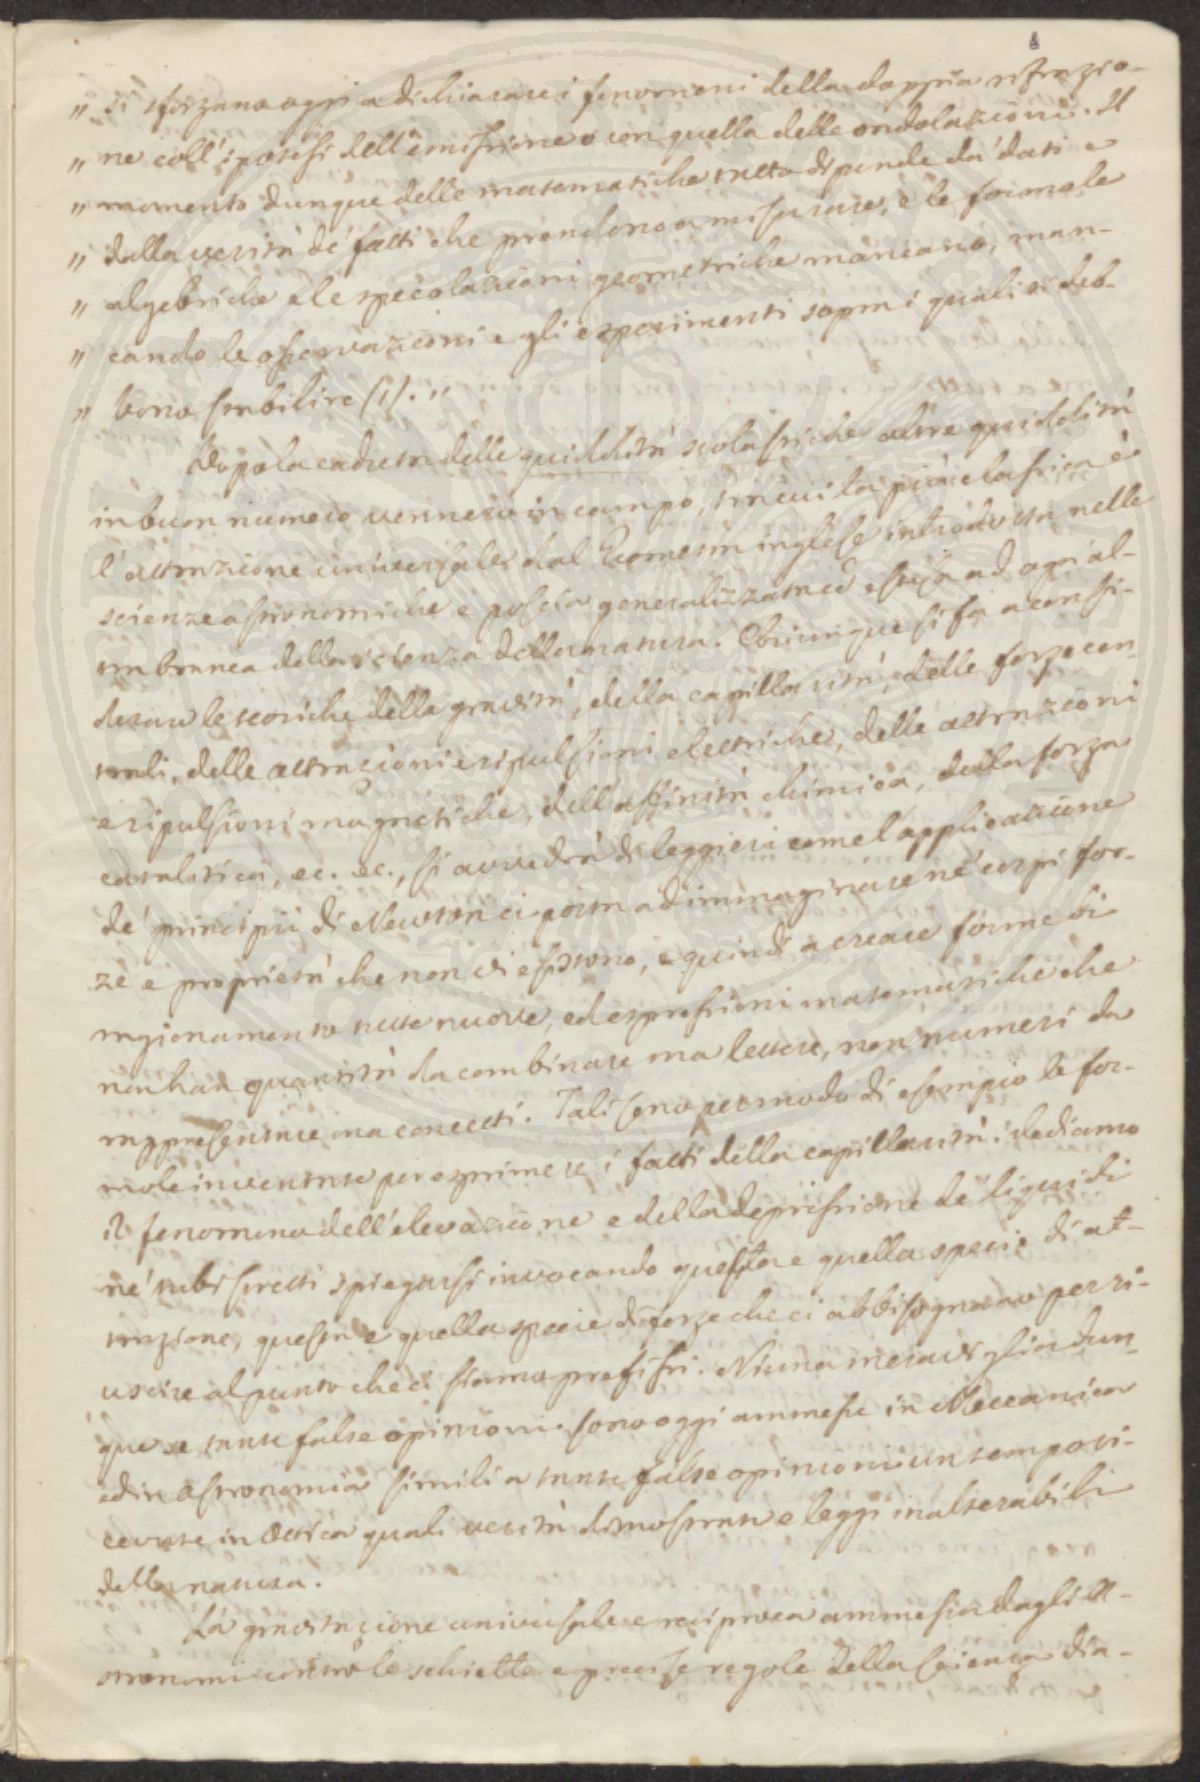 „ si sforzano oggi a dichiarare i fenomeni della doppia rifrazio-
„ ne coll'ipotesi dell'emissione o con quella delle ondolazioni. Il
„ momento dunque delle matematiche tutto dipende da' dati e
„ dalla verità de' fatti che prendono a misurare, e le formole
„ algebriche e le specolazioni geometriche mancano, man-
„ cando le osservazioni e gli esperimenti sopra i quali si deb-
„ bono stabilire (1). „
Dopo la caduta delle quiddità scolastiche altre quiddità
in buon numero vennero in campo, tra cui la più elastica è
l'attrazione universale dal Geometra inglese introdotta nelle
scienze astronomiche e poscia generalizzata ed estesa ad ogni al-
tra branca della scienza della natura. Chiunque si fa a consi-
derare le teoriche della gravità, della capillarità, delle forze cen-
trali, delle attrazioni e ripulsioni elettriche, delle attrazioni
e ripulsioni magnetiche, dell'affinità chimica, della forza
catalitica, ec. ec., si avvedrà di leggieri come l'applicazione
de' principii di Newton ci porta ad immaginare ne' corpi for-
ze e proprietà che non vi esistono, e quindi a creare forme di
ragionamento tutte nuove, ed espressioni matematiche che
non han quantità da combinare ma lettere, non numeri da
rappresentare ma concetti. Tali sono per modo di esempio le for-
mole inventate per esprimere i fatti della capillarità: vediamo
il fenomeno dell'elevazione e della depressione de' liquidi
ne' tubi stretti spiegarsi invocando questa e quella specie di at-
trazione, questa e quella specie di forze che ci abbisognano per ri-
uscire al punto che ci siamo prefissi. Niuna meraviglia dun-
que se tante false opinioni sono oggi ammesse in Meccanica
ed in Astronomia simili a tante false opinioni un tempo ri-
cevute in Ottica quali verità dimostrate e leggi inalterabili
della natura.
La gravitazione universale e reciproca ammessa dagli A-
stronomi contro le schiette e precise regole della scienza dia-